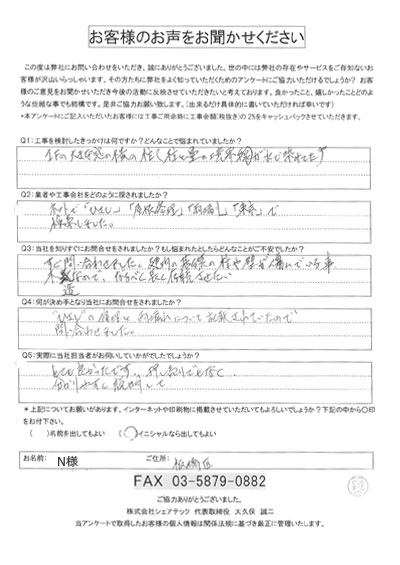 お客様のお声をお聞かせください
この度は弊社にお問い合わせをいただき、誠にありがとうございました。世の中には弊社の存在やサービスをご存知ないお
客様が沢山いらっしゃいます。その方たちに弊社をよく知っていただくためのアンケートにご協力いただけるでしょうか? お客
様のご意見をお聞かせいただき今後の活動に反映させていただきたいと考えております。良かったこと、嬉しかったことどのよ
うな些細な事でも結構です。是非ご協力お願い致します。(出来るだけ具体的に書いていただければ幸いです)
*本アンケートにご記入いただいたお客様には工事ご用命時に工事金額(税抜き)の2%をキャッシュバックさせていただきます。
Q1:工事を検討したきっかけは何ですか?どんなことで悩まれていましたか?
Q2:業者や工事会社をどのように探されましたか?
検索しました。
Q3:当社を知りすぐにお問合せをされましたか?もし悩まれたとしたらどんなことがご不安でしたか?
すぐ問い合わせました。
Q4:何が決め手となり当社にお問合せをされましたか?
記載されていたので
問い合わせました。
Q5:実際に当社担当者がお伺いしていかがでしたでしょうか?
とても良かったです。
分かりやすく説明して
*上記についてお願いがあります。インターネットや印刷物に掲載させていただいてもよろしいでしょうか?下記の中から〇印
をお付下さい。
( )名前を出してもよい (〇)イニシャルなら出してもよい
お名前: N様 ご住所: 板橋区
FAX 03-5879-0882
ご協力ありがとうございました。
株式会社シェアテック 代表取締役 大久保 誠二
当アンケートで取得したお客様の個人情報は関係法規に基づき厳正に管理いたします。